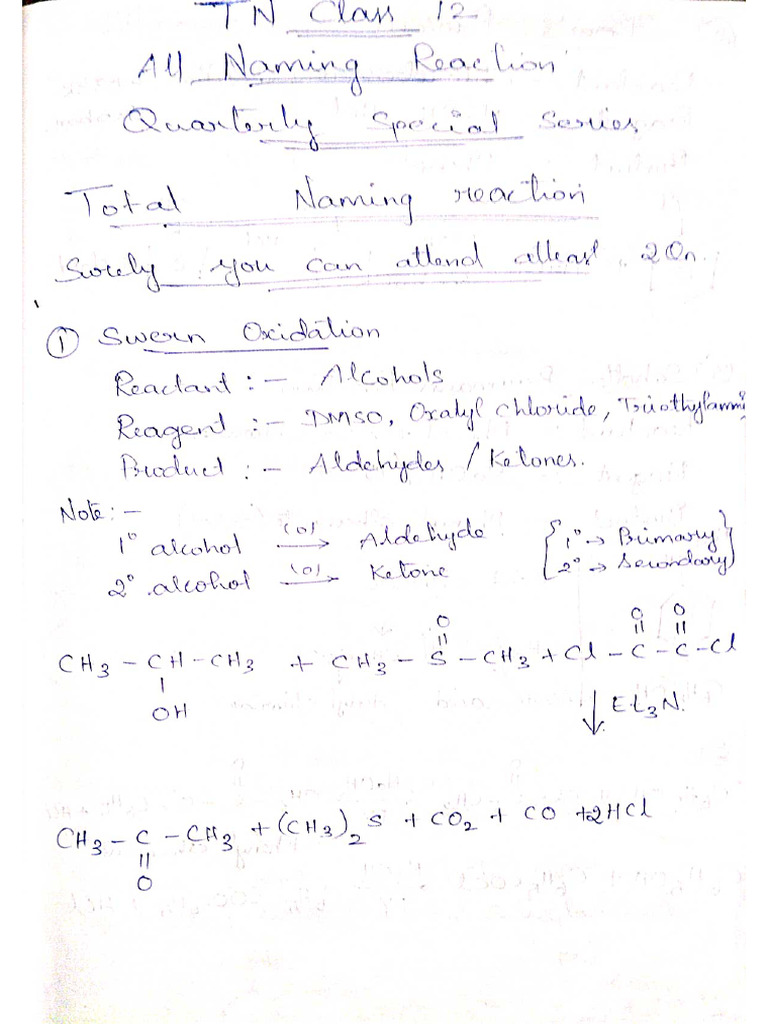 TN Class 12
All Naming Reaction
Quarterly Special Series
Total Naming reaction
Surely you can attend atleast 2Qn.
① Swern Oxidation
Reactant :- Alcohols
Reagent :- DMSO, Oxalyl Chloride, Triethylamine
Product :- Aldehydes / Ketones.
Note :-
1° alcohol (O)→ Aldehyde {1° → Primary}
2° alcohol (O)→ Ketone {2° → Secondary}
O O O
|| || ||
CH3 – CH – CH3 + CH3 – S – CH3 + Cl – C – C – Cl
|
OH
↓ Et3N.
CH3 – C – CH3 + (CH3)2 S + CO2 + CO + 2HCl
||
O